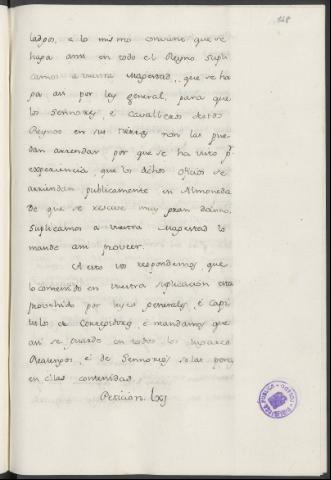 168
lados, e lo mismo conviene que se
haga ansi en todo el Reyno supli
camos a vuestra Magestad, que se ha
ga asi por ley general, para que
los Sennores, e Cavalleros destos
Reynos en sus tierras non las pue
dan arrendar por que se ha visto pr
experiencia, que los dichos oficios se
arriendan publicamente en Almoneda
de que se rescive muy gran danno,
suplicamos a vuestra Magestad lo
mande ansi proveer.
A esto vos respondemos que
lo contenido en vuestra suplicacion esta
provehido por leyes generales, é Capi
tulos de Corregidores é mandamos que
asi se guarde en todos los lugares
Realengos, é de Sennorios so las penas
en ellas contenidas.
Peticion. lxj